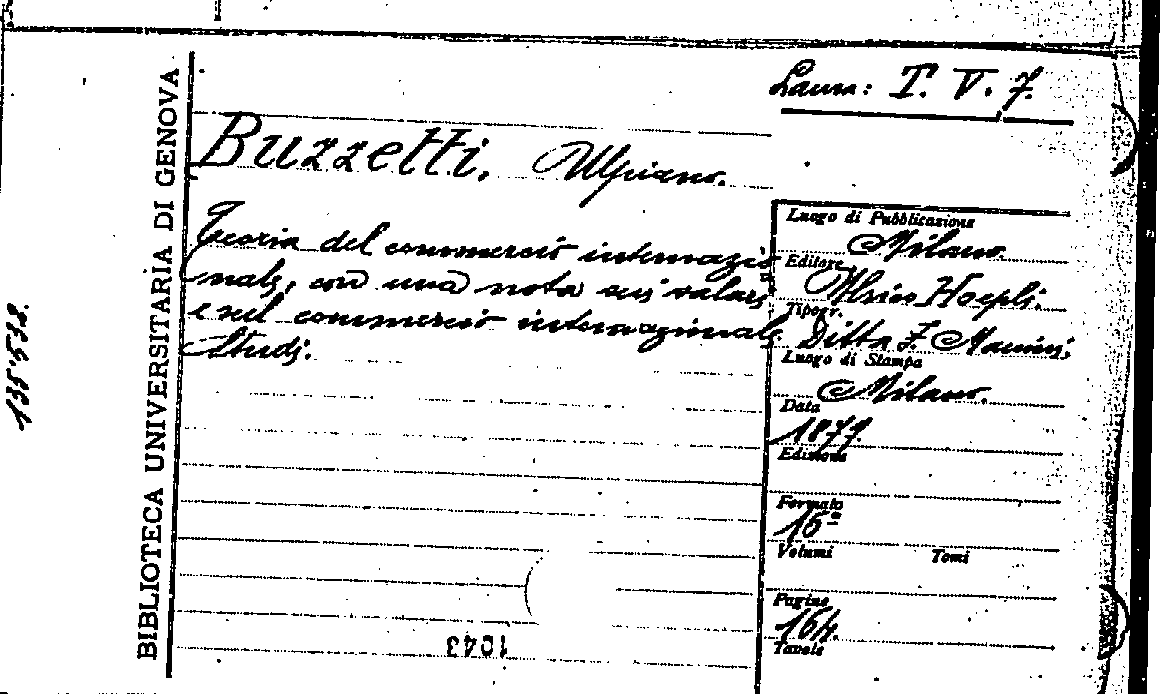 Laura: T. V. 7.
Buzzetti, Ulpiano.
Teoria del commercio internazio
nale, con una nota sui valori
e sul commercio internazionale
Studj.
Luogo di Pubblicazione
Milano.
Editore
Ulrico Hoepli.
Tipogr.
Ditta F. Manini,
Luogo di Stampa
Milano.
Data
1877.
Edizione
Formato
16°
Volumi Tomi
Pagine
164.
Tavole
BIBLIOTECA UNIVERSITARIA DI GENOVA
135·538.
1043